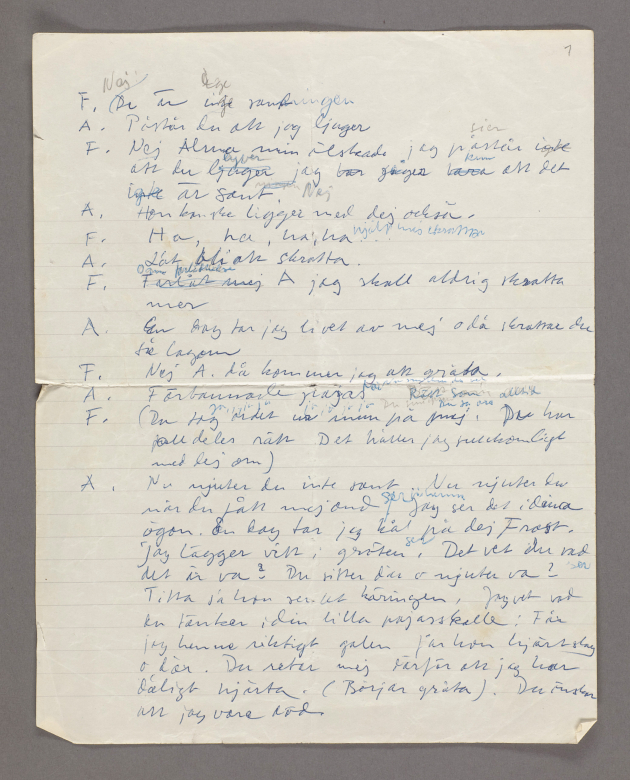 1
Nej
F. (Du är inte sanningen
A. Påstår du att jag ljuger
sier
F. Nej Alma min älskade jag påstår inte
att du ljuger jag säger bara att det
inte är sant. Nej
A. Hon kanske ligger med dej också.
F. Ha, ha, ha, ha
A. Låt bli att skratta.
F. Förlåt mej A jag skall aldrig skratta
mer
A. En dag tar jag livet av mej o då skrattar du
så lagom
F. Nej A. då kommer jag att gråta.
A. Förbannade pajas
F. (Du tog ordet ur mun på mej. Du har
alldeles rätt Det håller jag fullkomligt
med dej om)
A. Nu njuter du inte sant. Nu njuter du
när du fått mej ond jag ser det i dina
ögon. En dag tar jag kål på dej Frost.
Jag lägger vitt i gröten. Det vet du vad
det är va? Du sitter där o njuter va?
Titta så hon ser ut käringen, Jag vet vad
du tänker i din lilla pajasskalle: Får
jag henne riktigt galen får hon hjärtslag
o dör. Du retar mej därför att jag har
dåligt hjärta. (Börjar gråta). Du önskar
att jag vore död.